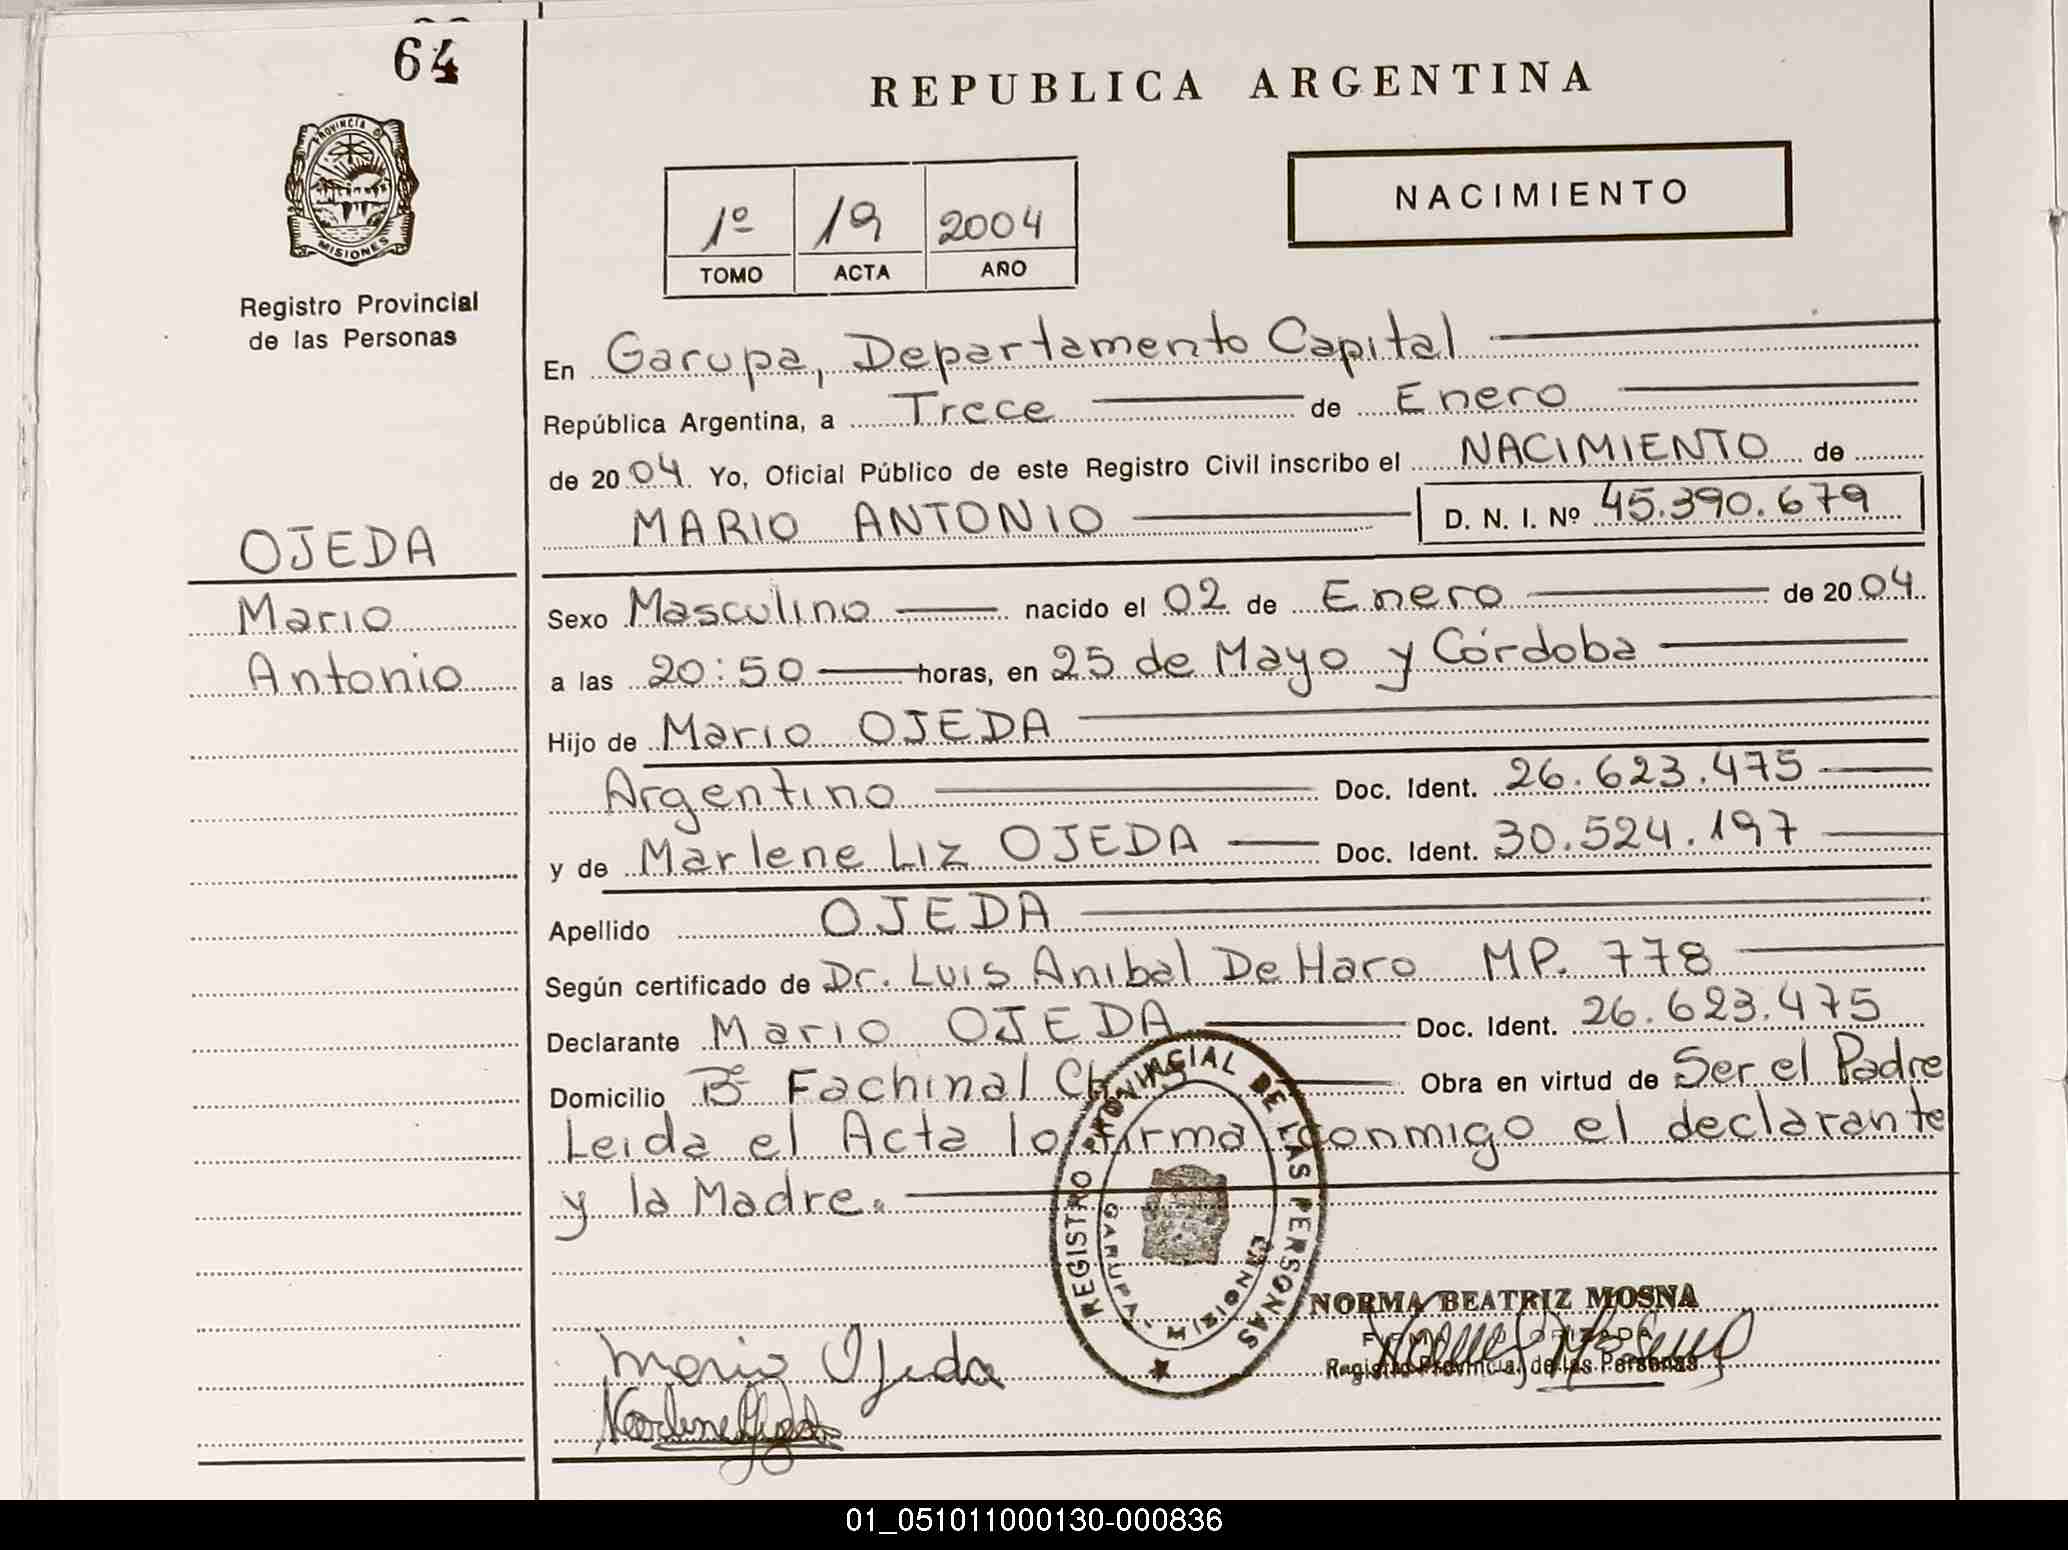 64
PROVINCIA D
MISIONES
Registro Provincial
de las Personas
REPUBLICA ARGENTINA
1º 19 2004
TOMO ACTA AÑO
NACIMIENTO
En Garupa, Departamento Capital
República Argentina, a Trece de Enero
de 2004. Yo, Oficial Público de este Registro Civil inscribo el NACIMIENTO de
MARIO ANTONIO D. N. I. Nº 45.390.679
OJEDA
Mario
Antonio
Sexo Masculino nacido el 02 de Enero de 2004.
a las 20:50 horas, en 25 de Mayo y Córdoba
Hijo de Mario OJEDA
Argentino Doc. Ident. 26.623.475
y de Marlene Liz OJEDA Doc. Ident. 30.524.197
Apellido OJEDA
Según certificado de Dr. Luis Anibal De Haro MP. 778
Declarante Mario OJEDA Doc. Ident. 26.623.475
Domicilio Bº Fachinal Obra en virtud de Ser el Padre
Leida el Acta lo firma conmigo el declarante
y la Madre.
REGISTRO PROVINCIAL DE LAS PERSONAS
GARUPA
NORMA BEATRIZ MOSNA
Registro Provincial de las Personas
Mario Ojeda
01_051011000130-000836